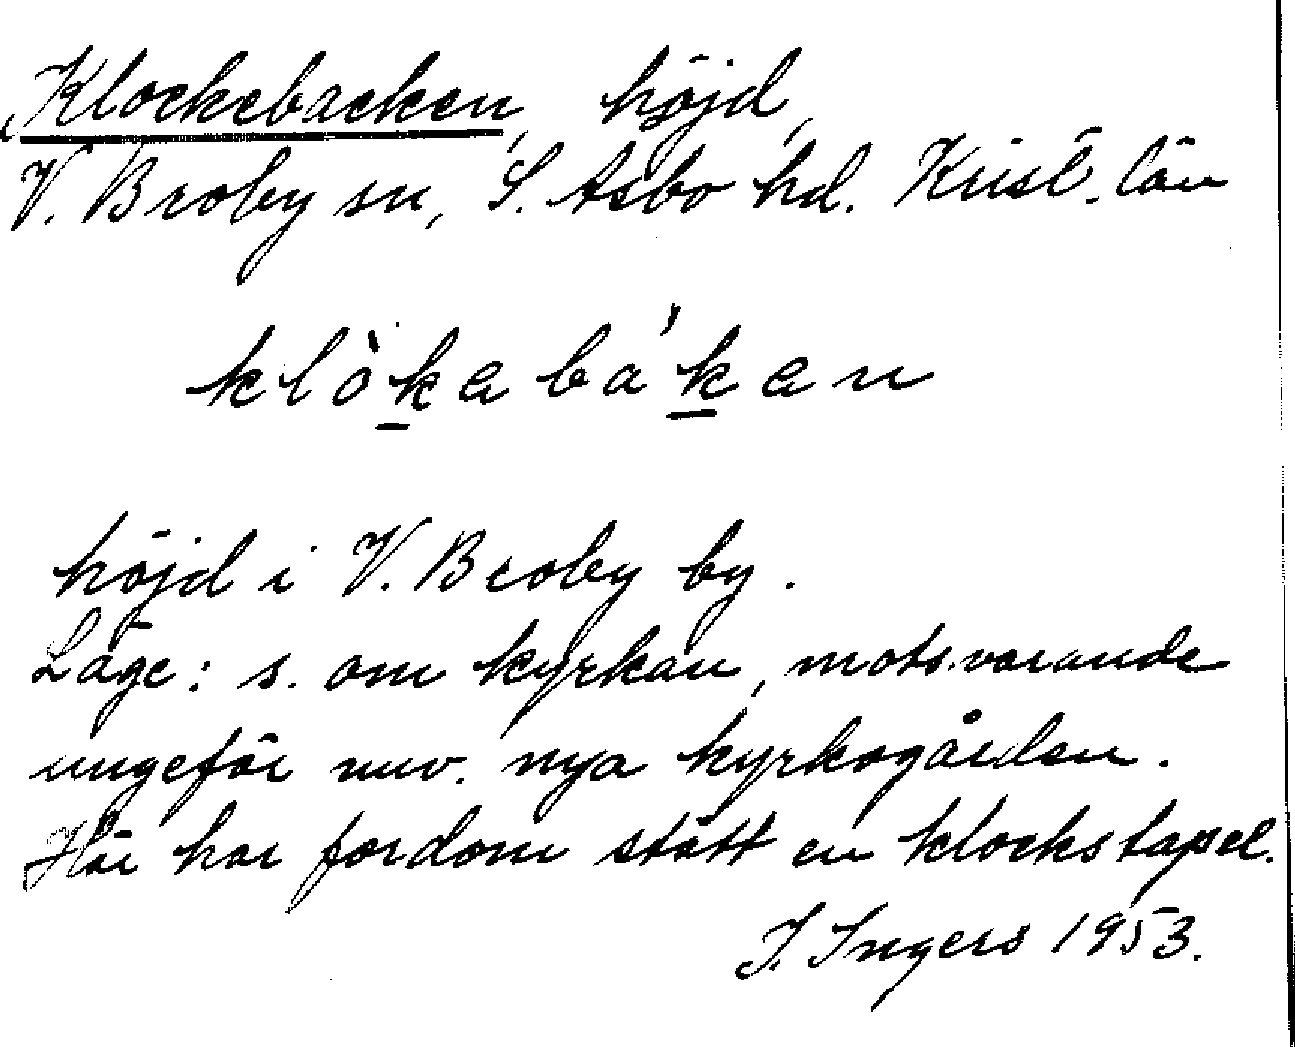 Klockebacken, höjd,
V. Broby sn, S. Åsbo hd. Krist. län
klòkabákan
höjd i V. Broby by.
Läge: s. om kyrkan, motsvarande
ungefär nuv. nya kyrkogården.
Här har fordom stått en klockstapel.
I. Ingers 1953.